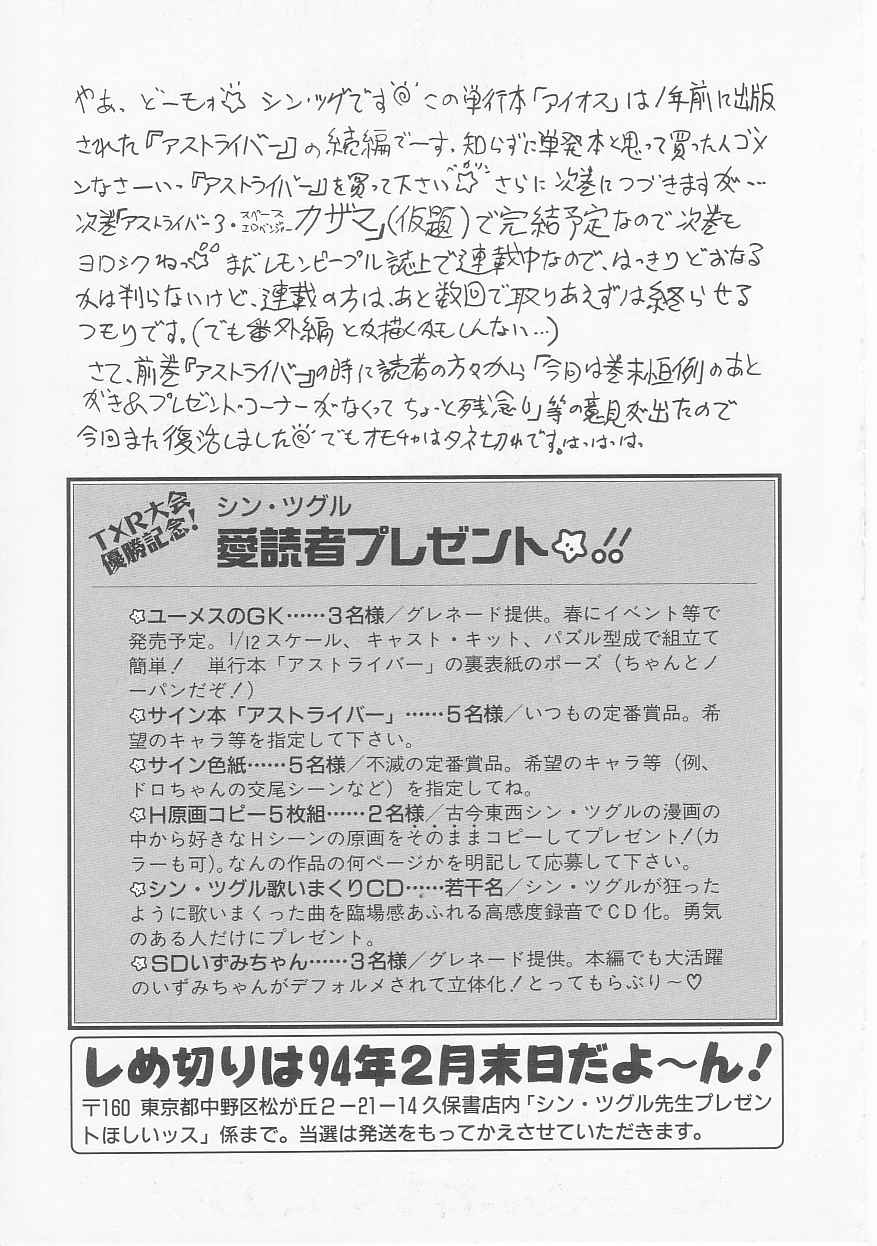 やぁ、どーもォ☆ シン・ツグルです この単行本「アイオス」は1年前に出版
された『アストライバー』の続編でーす。知らずに単発本と思って買った人ゴメ
ンなさーいっ『アストライバー』を買って下さい☆ さらに次巻につづきますが…
次巻「アストライバー3・スペースエロベンジャーカザマ」(仮題)で完結予定なので次巻も
ヨロシクねっ☆ まだレモンピープル誌上で連載中なので、はっきりどおなる
かは判らないけど、連載の方は、あと数回で取りあえずは終らせる
つもりです。(でも番外編とか描くかもしんない…)
さて、前巻『アストライバー』の時に読者の方々から「今回は巻末恒例のあと
がき&プレゼント・コーナーがなくってちょっと残念」等の意見が出たので
今回また復活しました でもオモチャはタネ切れです。はっはっは、
TXR大会
優勝記念!
シン・ツグル
愛読者プレゼント☆!!
☆ユーメスのGK……3名様／グレネード提供。春にイベント等で
発売予定。1/12スケール、キャスト・キット、パズル型成で組立て
簡単! 単行本「アストライバー」の裏表紙のポーズ（ちゃんとノ
ーパンだぞ!）
☆サイン本「アストライバー」……5名様／いつもの定番賞品。希
望のキャラ等を指定して下さい。
☆サイン色紙……5名様／不滅の定番賞品。希望のキャラ等（例、
ドロちゃんの交尾シーンなど）を指定してね。
☆H原画コピー5枚組……2名様／古今東西シン・ツグルの漫画の
中から好きなHシーンの原画をそのままコピーしてプレゼント!(カ
ラーも可)。なんの作品の何ページかを明記して応募して下さい。
☆シン・ツグル歌いまくりCD……若干名／シン・ツグルが狂った
ように歌いまくった曲を臨場感あふれる高感度録音でCD化。勇気
のある人だけにプレゼント。
☆SDいずみちゃん……3名様／グレネード提供。本編でも大活躍
のいずみちゃんがデフォルメされて立体化!とってもらぶり〜♡
しめ切りは94年2月末日だよ〜ん!
〒160 東京都中野区松が丘2−21−14久保書店内「シン・ツグル先生プレゼン
トほしいッス」係まで。当選は発送をもってかえさせていただきます。